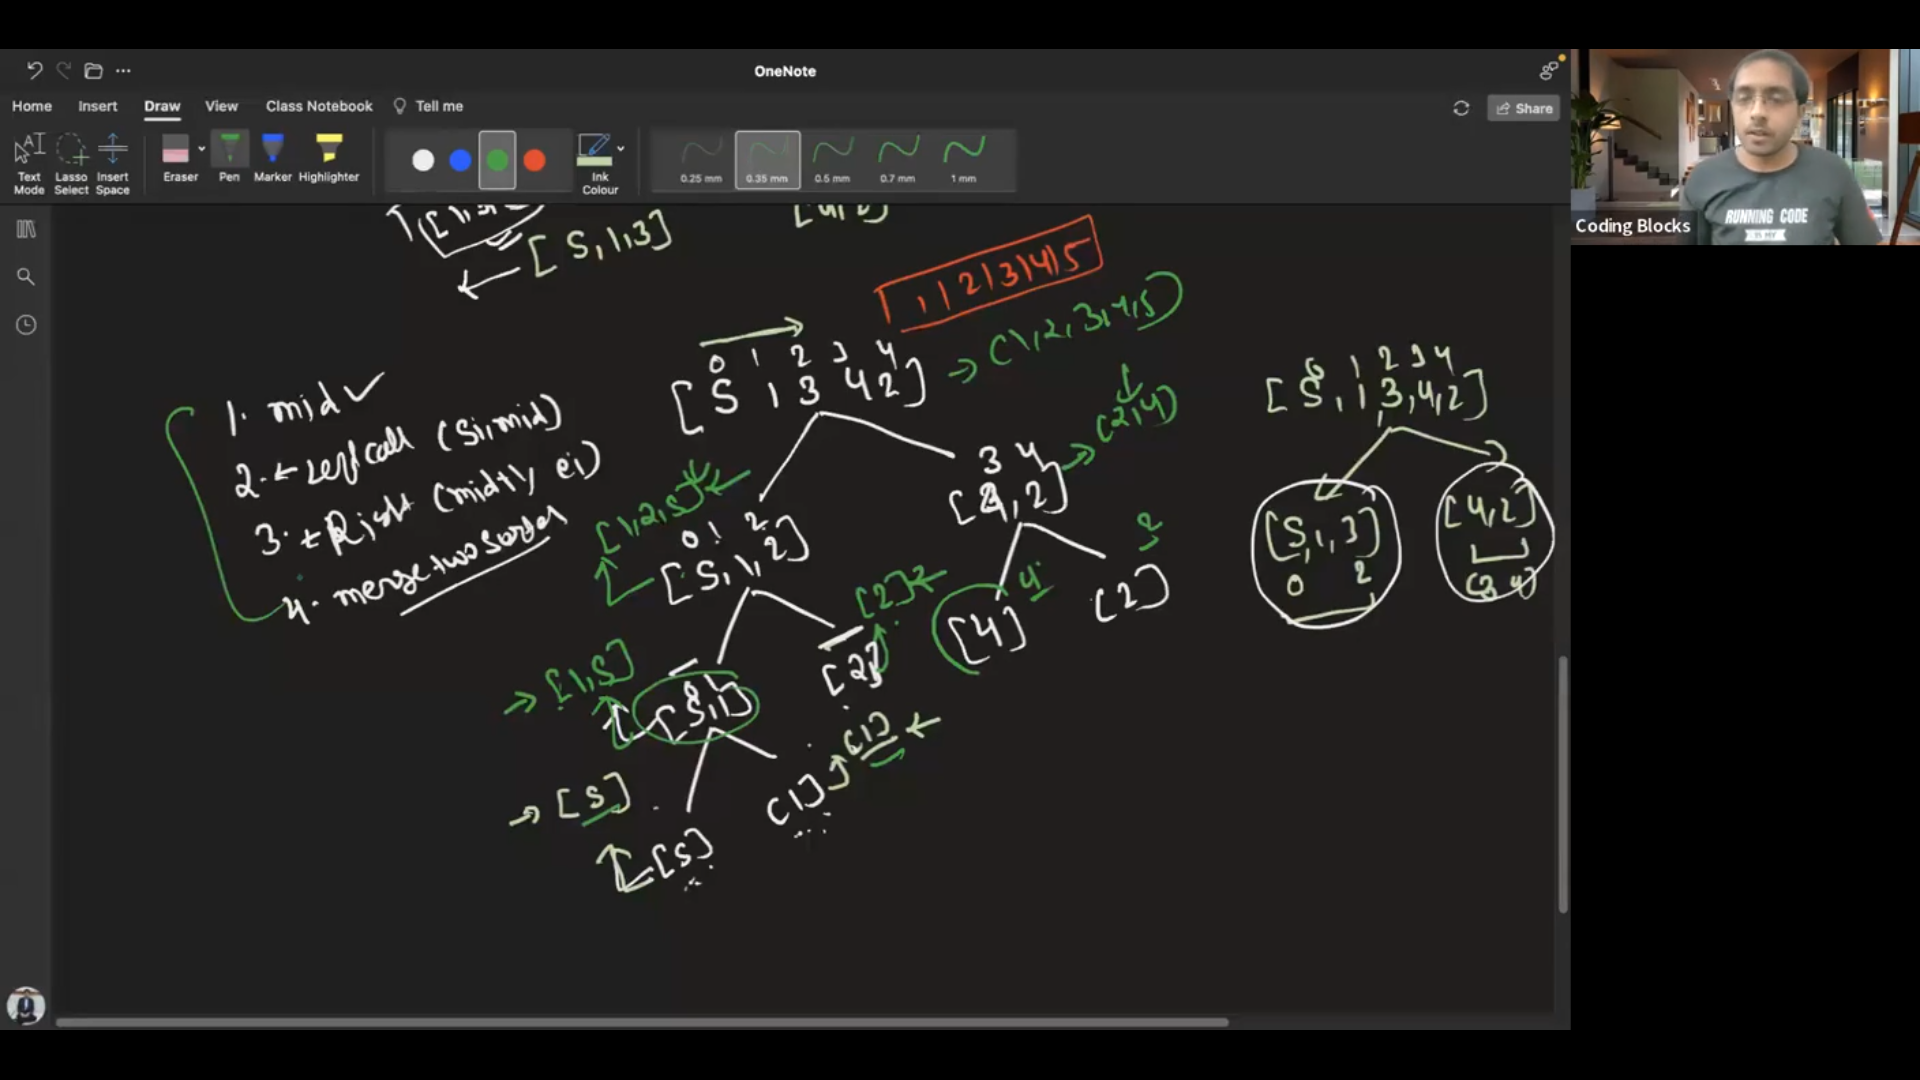 OneNote
Home Insert Draw View Class Notebook Tell me
Share
Text Mode
Lasso Select
Insert Space
Eraser
Pen
Marker
Highlighter
Ink Colour
0.25 mm
0.35 mm
0.5 mm
0.7 mm
1 mm
RUNNING CODE
IS MY
Coding Blocks
[5,1,3]
1|2|3|4|5
0 1 2 3 4
[5 1 3 4 2] → (1,2,3,4,5)
1. mid ✓
2. ← Left call (si, mid)
3. ← Right (mid+1, ei)
4. merge two sorted
(2,4)
3 4
[4,2]
[1,2,5]
0 1 2
[5,1,2]
[2]
[4]
4
2
[2]
[2]
→ [1,5]
0 1
[5,1]
→ [5]
[1]
[1]
[5]
0 1 2 3 4
[5,1,3,4,2]
[5,1,3]
0 2
[4,2]